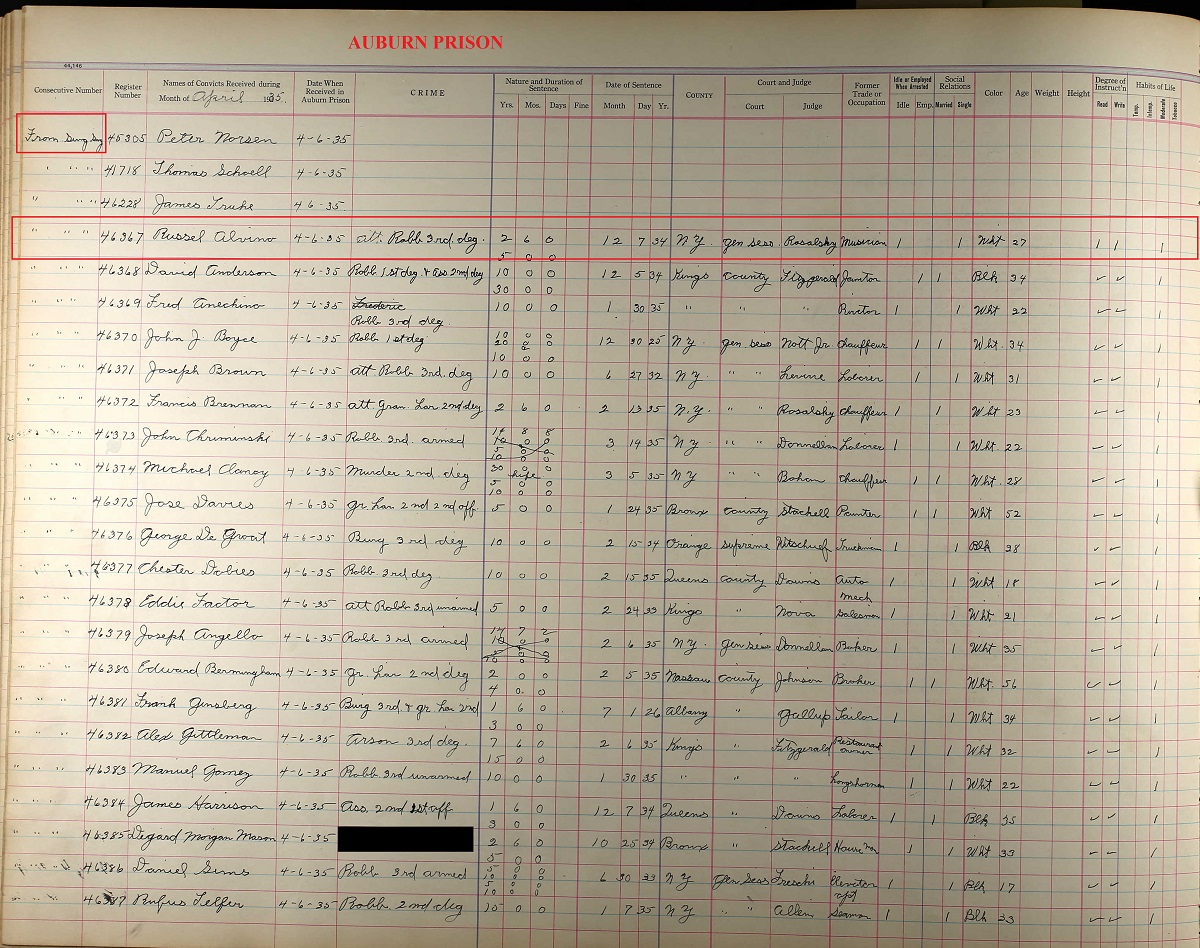 AUBURN PRISON
44,146
Consecutive Number Register Number Names of Convicts Received during Month of April 1935. Date When Received in Auburn Prison CRIME Nature and Duration of Sentence Yrs. Mos. Days Fine Date of Sentence Month Day Yr. COUNTY Court and Judge Court Judge Former Trade or Occupation Idle or Employed When Arrested Idle Emp. Social Relations Married Single Color Age Weight Height Degree of Instruct'n Read Write Habits of Life Temp. Intemp. Moderate Tobacco
From Sing Sing 45305 Peter Norsen 4-6-35
" " " 41718 Thomas Schoell 4-6-35
" " " 46228 James Truhe 4 6-35.
" " " 46367 Russel Alvino 4-6-35 att. Robb 3rd. deg. 2 6 0 12 7 34 N Y. gen sess. Rosalsky Musician 1 1 Wht 27 1 1 1
5 0 0
" " " 46368 David Anderson 4-6-35 Robb 1st deg. & ass 2nd deg 10 0 0 12 5 34 Kings County Fitzgerald Janitor 1 1 Blk 34 ✓ ✓ 1
30 0 0
" " " 46369 Fred Anechino 4-6-35 Frederic 10 0 0 1 30 35 " " " 1 1 Wht 22 ✓ ✓ 1
Robb 3rd deg.
" " " 46370 John J. Boyce 4-6-35 Robb 1st deg 10 0 0 12 30 25 N Y. gen sess Nott Jr. chauffeur 1 1 Wht. 34 ✓ ✓ 1
20 0 0
10 0 0
" " " 46371 Joseph Brown 4-6-35 att. Robb 3rd. deg 10 0 0 6 27 32 N Y. " " Levine Laborer 1 1 Wht 31 ✓ ✓ 1
" " " 46372 Francis Brennan 4-6-35 att Gran. Lar 2nd deg 2 6 0 2 13 35 N.Y. " " Rosalsky chauffeur 1 1 Wht 23 ✓ ✓ 1
46373 John Chruminski 4-6-35 Robb. 3rd. armed 14 8 8 3 14 35 N Y " " Donnellan Laborer 1 1 Wht. 22 ✓ ✓ 1
10 0 0
" " " 46374 Michael Clancy 4-6-35 Murder 2nd. deg 30 0 Life 3 5 35 N Y " " Bohan chauffeur 1 1 Wht. 28 ✓ ✓ 1
5 0 0
10 0 0
" " " 46375 Jose Davies 4-6-35 gr. Lar 2nd 2nd off. 5 0 0 1 24 35 Bronx County Stackell Painter 1 1 Wht 52 ✓ ✓ 1
" " " 46376 George De Groat 4-6-35 Burg 3rd deg 10 0 0 2 15 34 Orange supreme Truckman 1 1 Blk 38 ✓ ✓ 1
46377 Chester Dobies 4-6-35 Robb. 3rd deg. 10 0 0 2 15 35 Queens county Downs Auto mech 1 1 Wht 18 ✓ ✓ 1
" " " 46378 Eddie Factor 4-6-35 att Robb 3rd unarmed 5 0 0 2 24 33 Kings " Nova Salesman 1 1 Wht 21 ✓ ✓ 1
" " " 46379 Joseph Angello 4-6-35 Robb 3rd armed 14 7 2 2 6 35 N Y. gen sess Donnellan Baker 1 1 Wht 35 ✓ ✓ 1
10 0 0
" " " 46380 Edward Bermingham 4-6-35 gr. Lar 2nd deg 2 0 0 2 5 35 Nassau county Johnson Broker 1 1 Wht. 56 ✓ ✓ 1
4 0 0
" " " 46381 Frank Ginsberg 4-6-35 Burg 3rd. & gr. Lar 2nd 1 6 0 7 1 26 Albany " Gallup Tailor 1 1 Wht 34 ✓ ✓ 1
3 0 0
" " " 46382 Alex Gittleman 4-6-35 Arson 3rd deg. 7 6 0 2 6 35 Kings " Fitzgerald Restaurant owner 1 1 Wht 32 ✓ ✓ 1
15 0 0
" " " 46383 Manuel Gomez 4-6-35 Robb 3rd unarmed 10 0 0 1 30 35 " " " Longshoreman 1 1 Wht 22 ✓ ✓ 1
" " " 46384 James Harrison 4-6-35 Ass. 2nd 1st off 1 6 0 12 7 34 Queens " Downs Laborer 1 1 Blk 35 ✓ ✓ 1
3 0 0
" " " 46385 Degard Morgan Mason 4-6-35 2 6 0 10 25 34 Bronx " Stackell 1 1 Wht 33 ✓ ✓ 1
5 0 0
46386 Daniel Sims 4-6-35 Robb 3rd armed 5 0 0 6 30 33 N Y gen sess Freschi Elevator opt 1 1 Blk 17 ✓ ✓ 1
10 0 0
5 0 0
10 0 0
46387 Rufus Telfer 4-6-35 Robb. 2nd deg 15 0 0 1 7 35 N Y " " Allen Seaman 1 1 Blk 33 ✓ ✓ 1